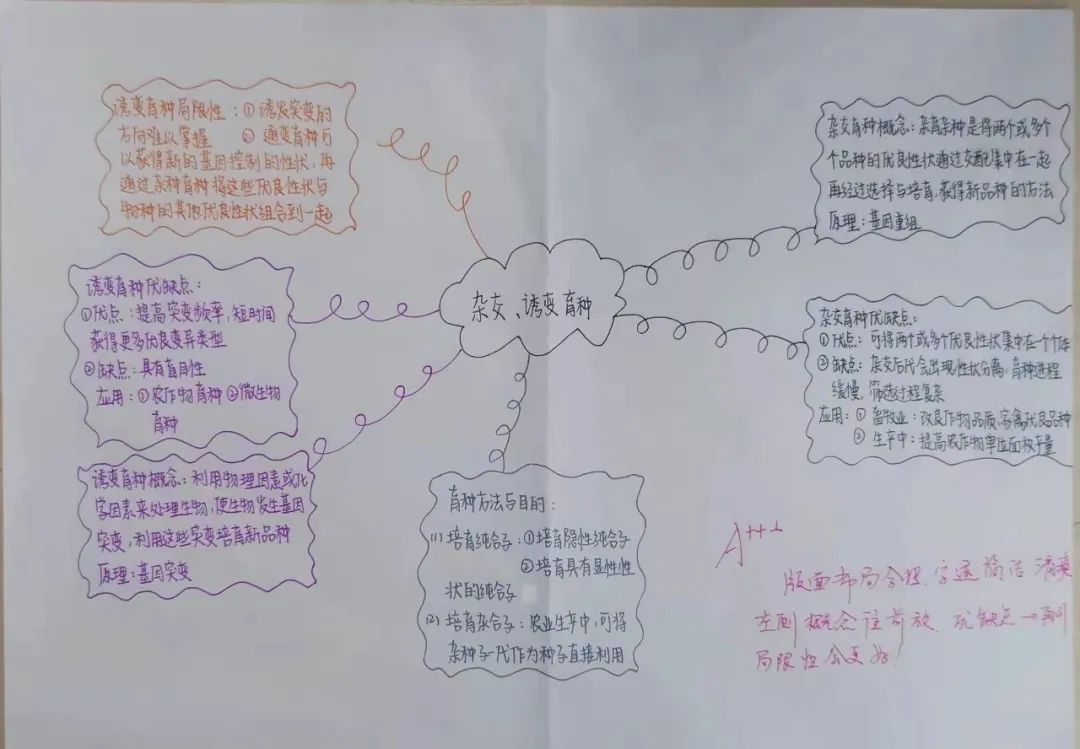 诱变育种局限性：①诱发突变的
方向难以掌握 ②通变育种可
以获得新的基因控制的性状，再
通过杂种育种将这些优良性状与
物种的其他优良性状组合到一起
诱变育种优缺点：
①优点：提高突变频率，短时间
获得更多优良变异类型
②缺点：具有盲目性
应用：①农作物育种②微生物
育种
诱变育种概念：利用物理因素或化
学因素来处理生物，使生物发生基因
突变，利用这些突变培育新品种
原理：基因突变
杂交、诱变育种
育种方法与目的：
(1)培育纯合子：①培育隐性纯合子
②培育具有显性性
状的纯合子
(2)培育杂合子：农业生产中，可将
杂种子一代作为种子直接利用
杂交育种概念：杂育杂种是将两个或多个
个品种的优良性状通过交配集中在一起
再经过选择与培育，获得新品种的方法
原理：基因重组
杂交育种优缺点：
①优点：可将两个或多个优良性状集中在一个个体
②缺点：杂交后代会出现性状分离，育种进程
缓慢，筛选过程复杂
应用：①畜牧业：改良作物品质，家禽优良品种
②生产中：提高农作物单位面积产量
A+++
版面布局合理、字迹简洁清爽
左侧概念往前放、优缺点→再到
局限性会更好！